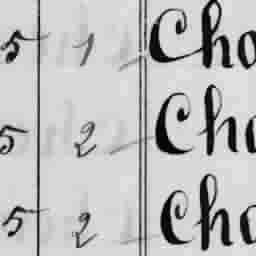 5 1 Cho
5 2 Cho
5 2 Cho